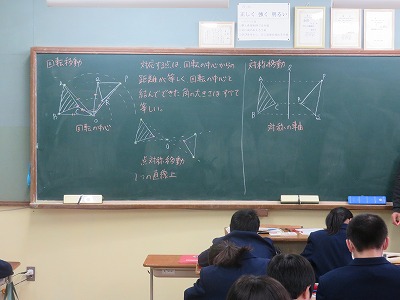 正しく 強く 明るい
回転移動
回転の中心
対応する点は、回転の中心からの
距離が等しく、回転の中心と
結んでできた角の大きさはすべて
等しい。
点対称移動
1つの直線上
対称移動
対称の軸
A
B
C
O
P
Q
R
ℓ